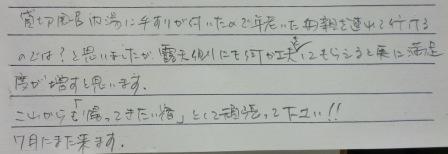 貸切風呂内湯に手すりが付いたので年老いた母親を連れて行ける
のでは？と思いましたが露天側にも何か工夫してもらえると更に満足
度が増すと思います。
これからも「帰ってきたい宿」として頑張って下さい!!
7月にまた来ます。